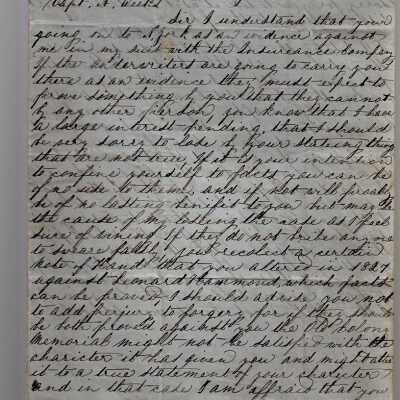 Capt. A. Weeks
Sir I understand that your
going on to N York as an evidence against
me in my suit with the Insureance Company
If the underoriters are going to carry you
there as an evidence they must expect to
prove something by you that they cannot
by any other person, you know that I have
a large interest pending, that I should
be very sorry to lose by your stateing thing
that are not true, If it is your intention
to confine yourself to facts you can be
of no use to them, and if not will
be of no lasting benifit to you but may be
the cause of my looseing the case as I feel
sure of wining If they do not bribe any one
to sware falsly, you recolect a certain
note of Hand that you altered in 1827
against Leonard Hammond, which facts
can be proved, I should advise you not
to add perjury to forgery for if they should
be both proved against you the Old Colony
Memorial might not be satisfied with the
charicter it has given you and might alter
it to a true statement of your charicter
and in that case I am affraid that you